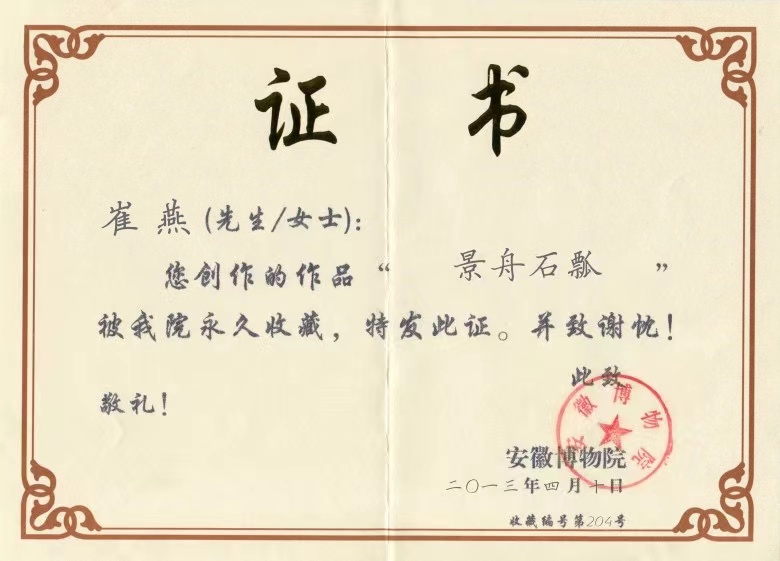 证 书
崔燕(先生/女士):
您创作的作品“景舟石瓢”
被我院永久收藏，特发此证。并致谢忱！
此致
敬礼！
安徽博物院
安徽博物院
二〇一三年四月十日
收藏编号第204号